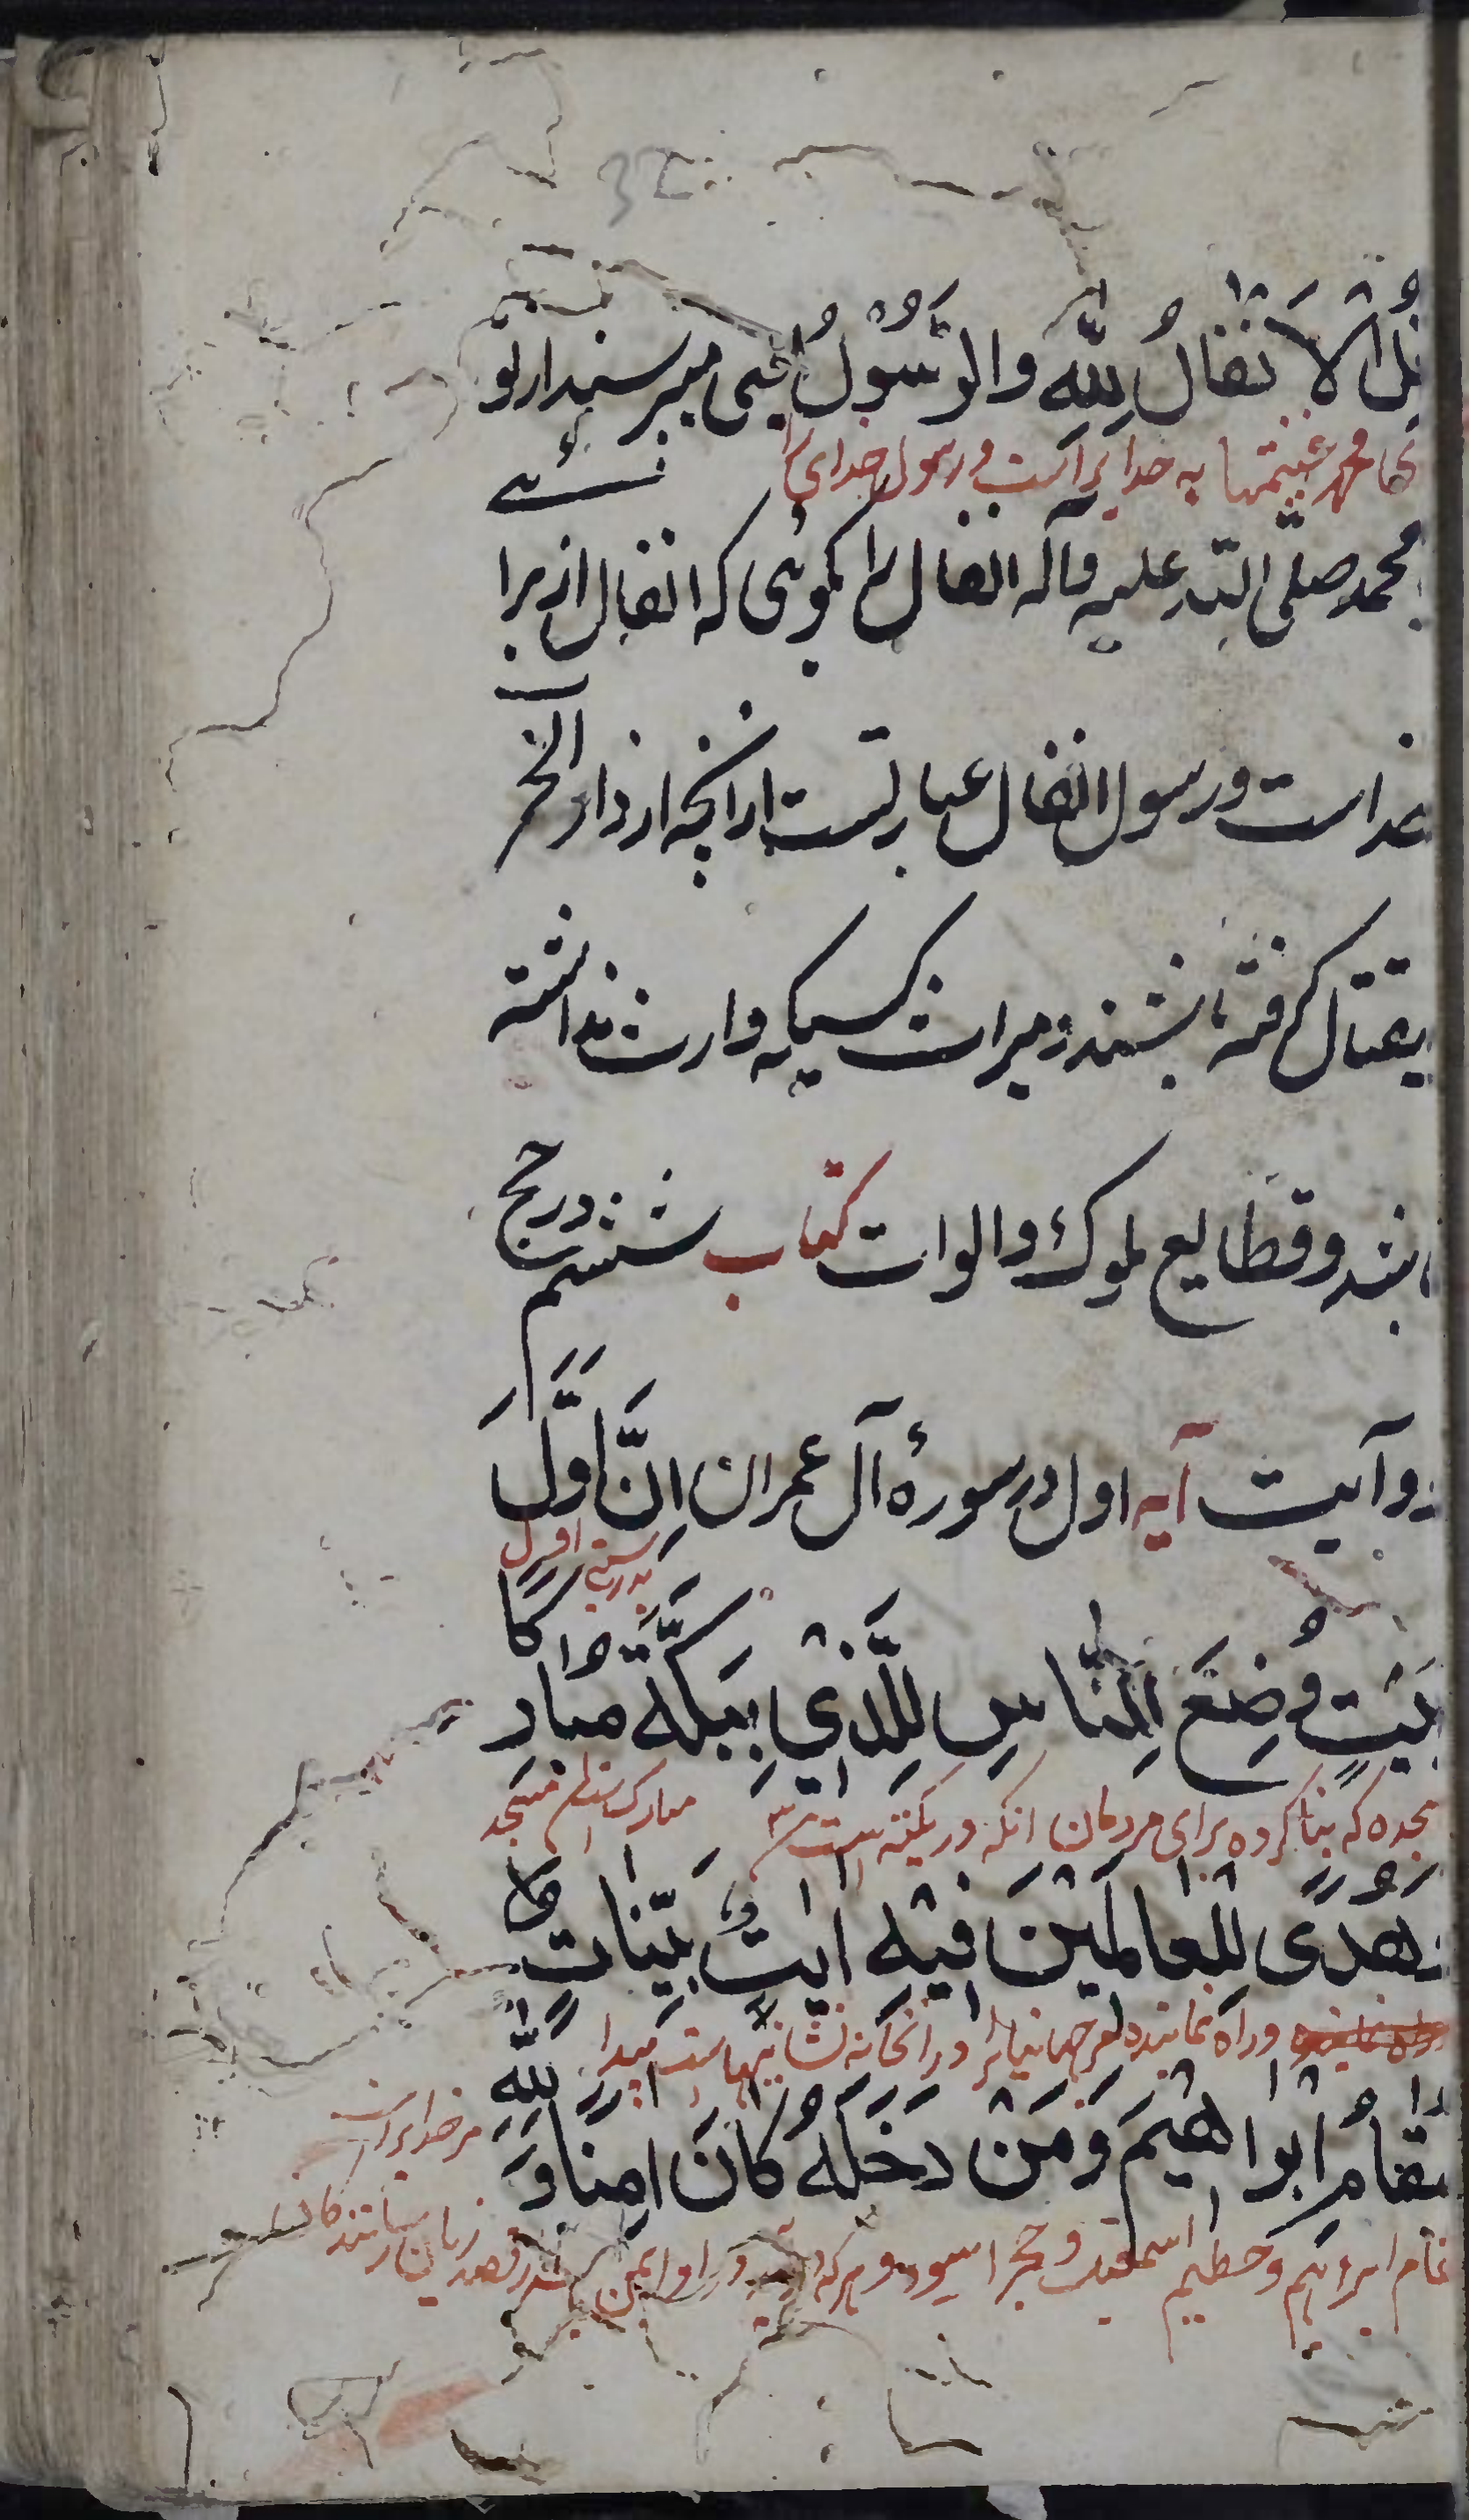 قُلِ الْاَنْفَالُ لِلّٰهِ وَالرَّسُوْلُ یعنی میپرسند از تو
محمد غنیمتها به خدایراست و رسول خدای را
محمد صلی الله علیه وآله انفال را بکوئی که انفال از برا
خداست و رسول انفال عبارتست از انچه از دار الحر
ب بقتال کرفته باشند و میراث کسیکه وارث نداشته
باشد وقطایع ملوک کتاب ششم در حج
دو آیت آیه اول در سورهٔ آل عمران اِنَّ اَوَّلَ
بدرستی اول
بَیْتٍ وُضِعَ لِلنَّاسِ لِلَّذِیْ بِبَکَّةَ مُبَارَکًا
که بنا کرده برای مردمان انکه در بکه است
وَهُدًی لِلْعَالَمِیْنَ فِیْهِ اٰیٰتٌ بَیِّنَاتٌ
وراه نماینده مر جهانیانرا در انخانه نشانیهاست پیدا
مَقَامُ اِبْرَاهِیْمَ وَمَنْ دَخَلَهُ کَانَ اٰمِنًا وَ لِلّٰهِ
مر خدایراست
مقام ابراهیم وحطیم اسمعیل وحجر اسود و هرکه در او ایمن